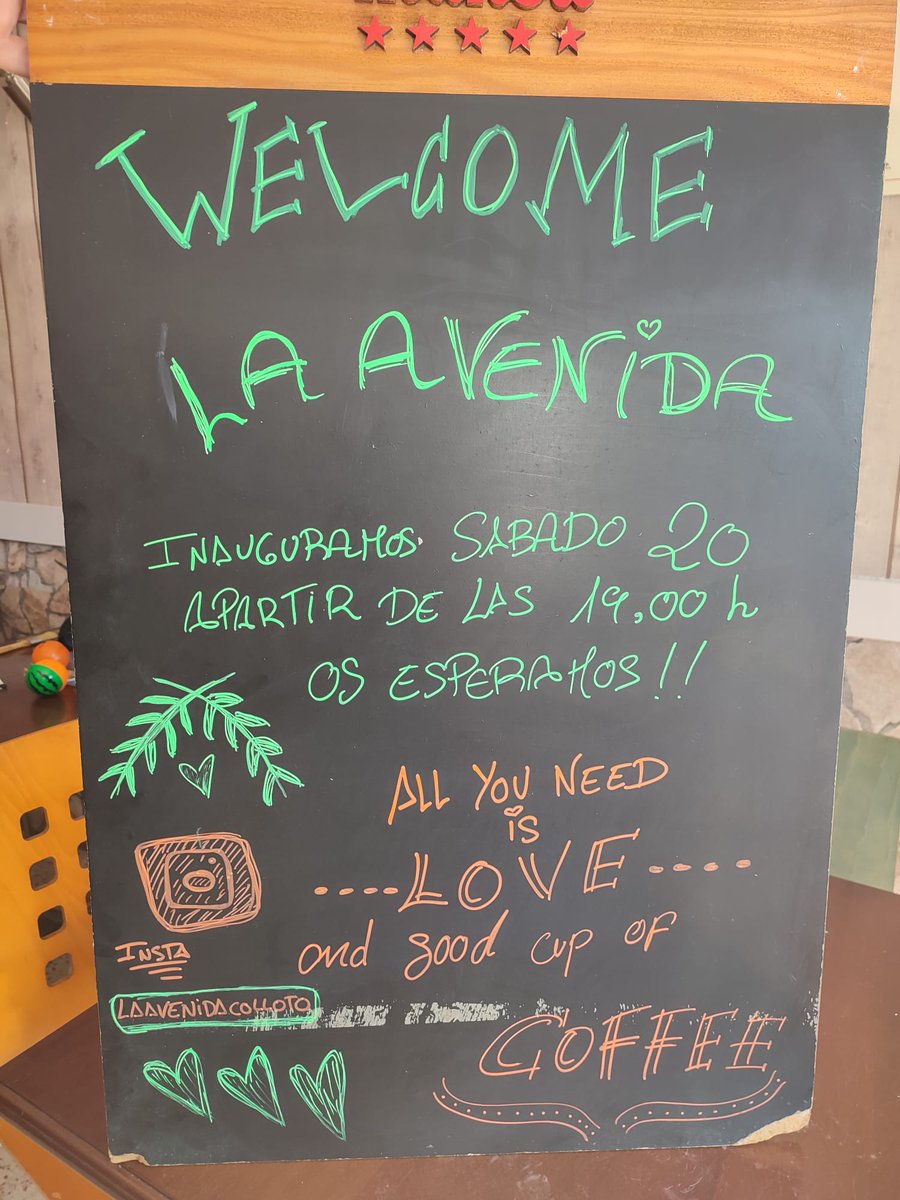 WELCOME
LA AVENiDA
INAUGURAMOS SABADO 20
APARTIR DE LAS 19,00 h
OS ESPERAMOS!!
ALL YOU NEED
is
----LOVE----
and good cup of
COFFEE
INSTA
LAAVENiDACOLLOTO